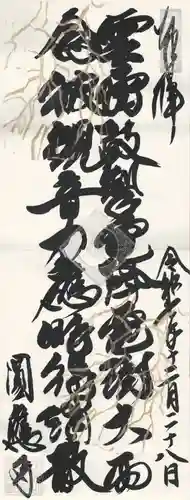 奉拝
雲雷鼓掣電降雹澍大雨
念彼観音力應時得消散
令和元年十二月二十八日
圓應寺